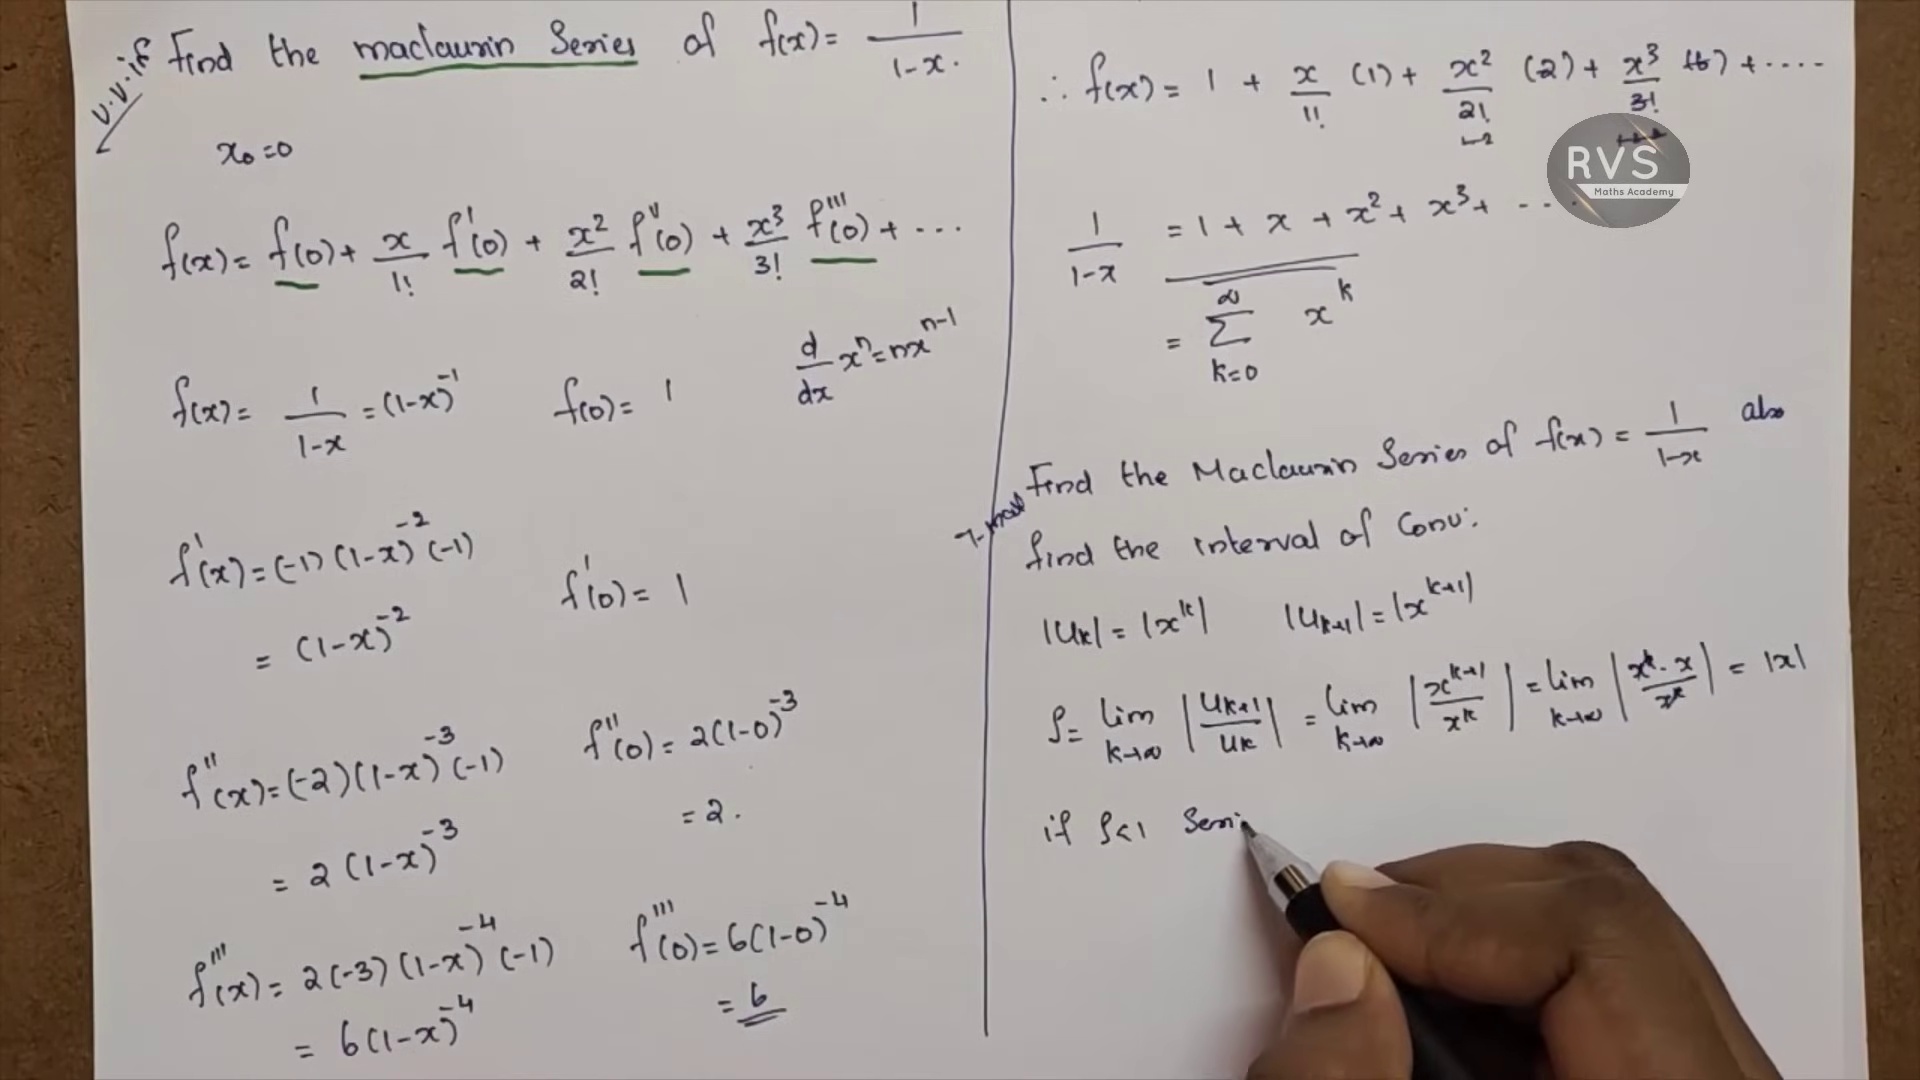 v.v.if
Find the maclaurin Series of f(x) = 1/(1-x).
x₀=0
f(x) = f(0) + x/1! f'(0) + x²/2! f''(0) + x³/3! f'''(0) + ...
d/dx xⁿ = nxⁿ⁻¹
f(x) = 1/(1-x) = (1-x)⁻¹ f(0) = 1
f'(x) = (-1)(1-x)⁻²(-1) f'(0) = 1
= (1-x)⁻²
f''(x) = (-2)(1-x)⁻³(-1) f''(0) = 2(1-0)⁻³
= 2(1-x)⁻³ = 2.
f'''(x) = 2(-3)(1-x)⁻⁴(-1) f'''(0) = 6(1-0)⁻⁴
= 6(1-x)⁻⁴ = 6
∴ f(x) = 1 + x/1! (1) + x²/2! (2) + x³/3! (6) + ....
RVS
Maths Academy
1/(1-x) = 1 + x + x² + x³ + ....
= ∑_{k=0}^{∞} x^k
Find the Maclaurin Series of f(x) = 1/(1-x) also
find the interval of Conv:
|U_k| = |x^k| |U_{k+1}| = |x^{k+1}|
ρ = lim_{k→∞} |U_{k+1}/U_k| = lim_{k→∞} |x^{k+1}/x^k| = lim_{k→∞} |x^k·x/x^k| = |x|
if ρ<1 Seri